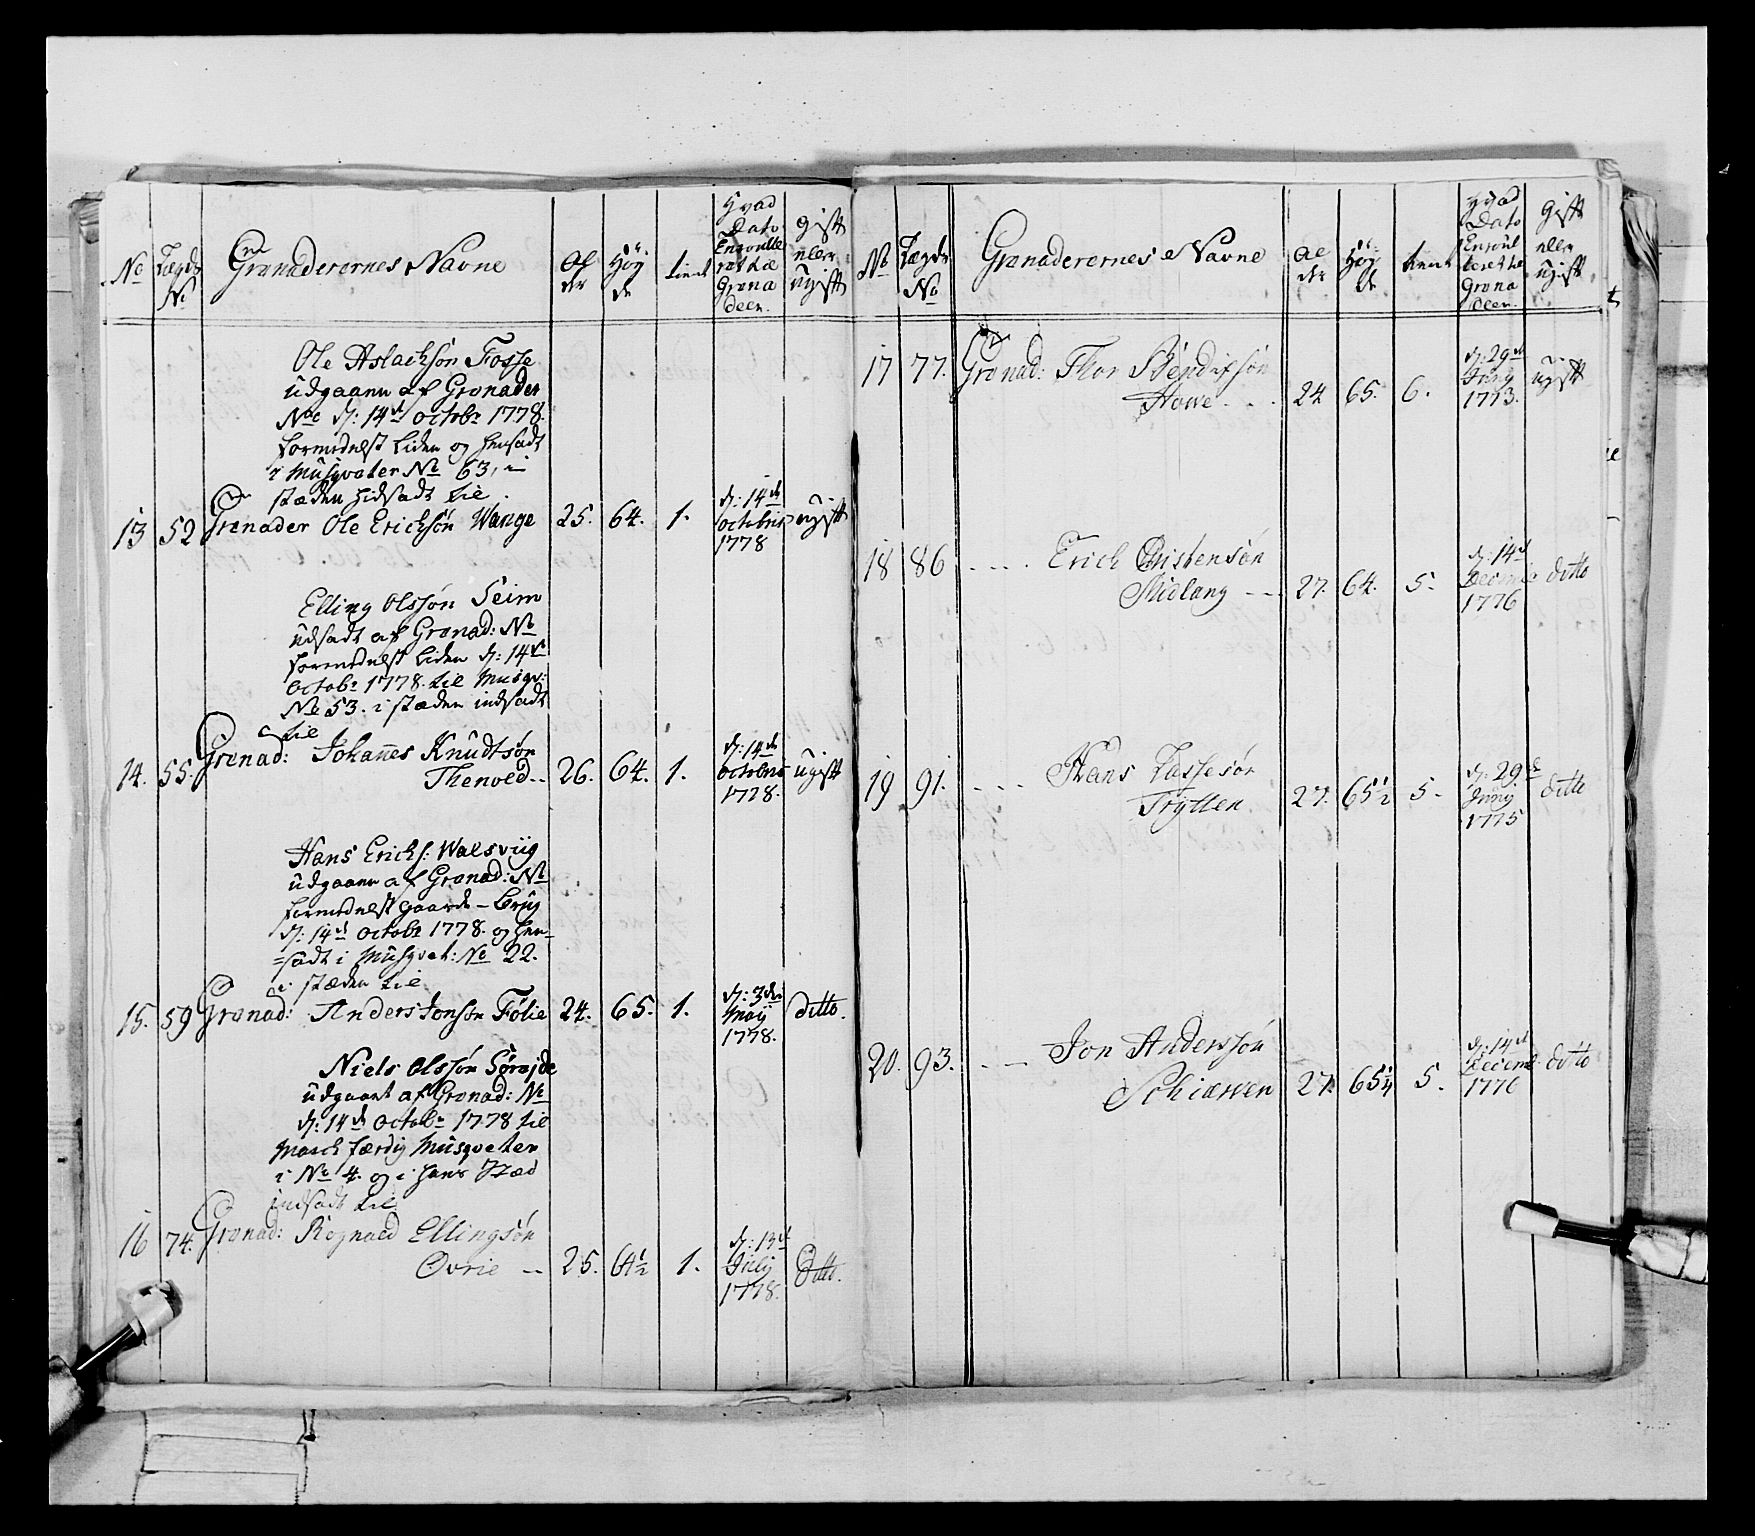 No
Lægds
No
Grenaderernes Navne
Al
der
Høy
de
tient
Hvad
Dato
Enroulle
ret til
Grena
deer.
Gift
eller
ugift
Ole Aslachsøn Fosse
udgaaen af Grenader
No d: 14de octobr 1778.
formedelst Liden og hensadt
i Musqveter No 63, i
stæden hidsadt til
13 52 Grenader Ole Erichsøn Wange 25. 64. 1. d: 14de octobris 1778 ugift
Elling Olssøn Seim
udsadt af Grenad: No
formedelst Liden d: 14de
octobr 1778. til Musqv:
No 53. i stæden indsadt
til
14. 55. Grenad: Johanes Knudtsøn
Thenoed -- 26. 64. 1. d: 14de octobris 1778. ugift
Hans Erichs: Walsviig
udgaaen af Grenad: No
formedelst gaards-brug
d: 14de octobr 1778. og hen-
=sadt i Musqvet: No 22.
i stæden til
15. 59 Grenad: Anders Jonsøn Følie 24. 65. 1. d: 3de Maij 1778. Ditto.
Niels Olssøn
udgaaet af Grenad: No
d: 14de octobr 1778 til
March færdig Musqveter
i No 4. og i hans Stæd
indsadt til
16 74. Grenad: Rognald Ellingsøn
Øvrie -- 25. 64½ 1. d: 13de Julij 1778. Ditto.
No
Lægds
No
Grenaderernes Navne
Al
der
Høy
de
tient
Hvad
Dato
Enroul
leret til
Grena
deer.
Gift
eller
ugift
17 77. Grenad: Thor Bendixsøn
Howe . . . 24 65. 6. d: 29de Junij 1773. ugift
18 86 . . . . Erich Christensøn
Midlang -- 27. 64. 5. d: 14de Decembr 1776 ditto
19 91. . . . . Hans Lassesøn
Trytten. 27. 65½ 5. d: 29de Junij 1775 ditto
20. 93. . . -- Jon Anderssøn
Schierven 27. 65¼ 5. d: 14de Decemb: 1776 ditto